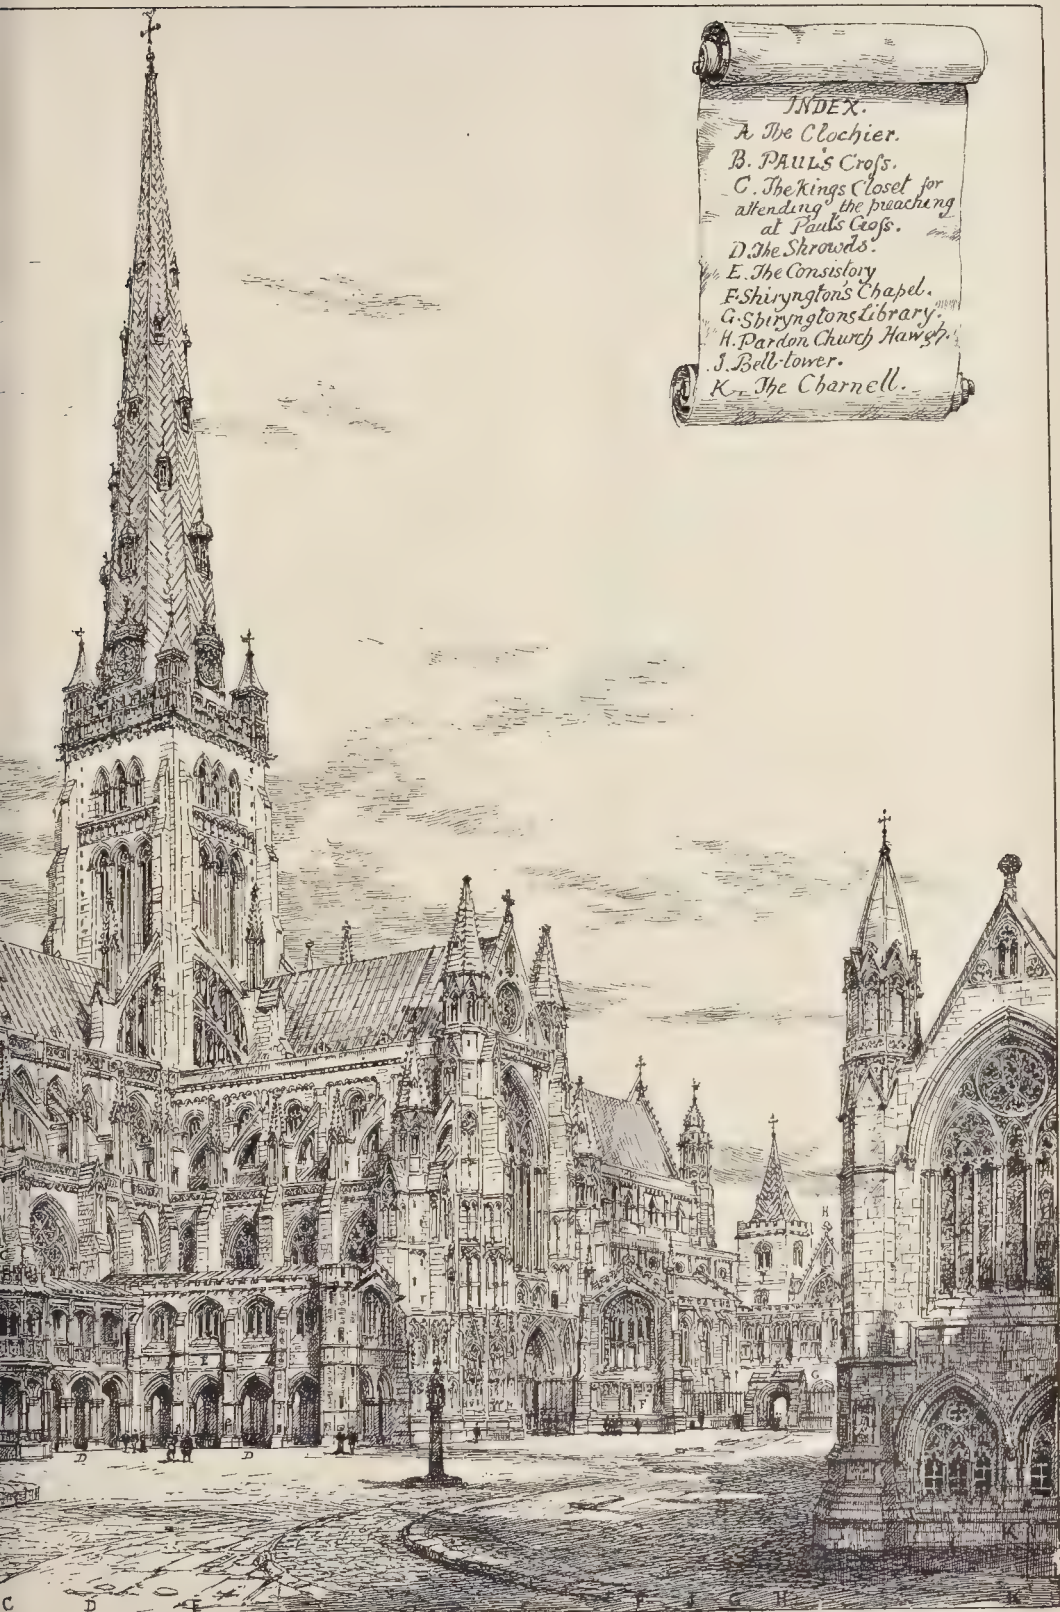 INDEX.
A The Clochier.
B. PAUL'S Croſs.
C. The Kings Closet for
attending the preaching
at Paul's Croſs.
D. The Shrowds.
E. The Consistory
F. Shiryngton's Chapel.
G. Shiryngtons Library.
H. Pardon Church Hawgh.
J. Bell-tower.
K. The Charnell.
H
E
G
F
D D
K
C D E F J G H K